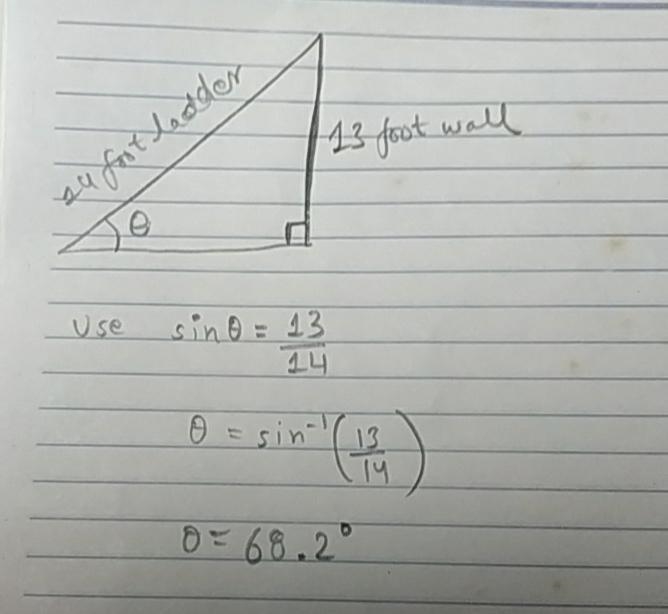 14 foot ladder
13 foot wall
θ
Use sinθ = 13/14
θ = sin⁻¹(13/14)
θ = 68.2°